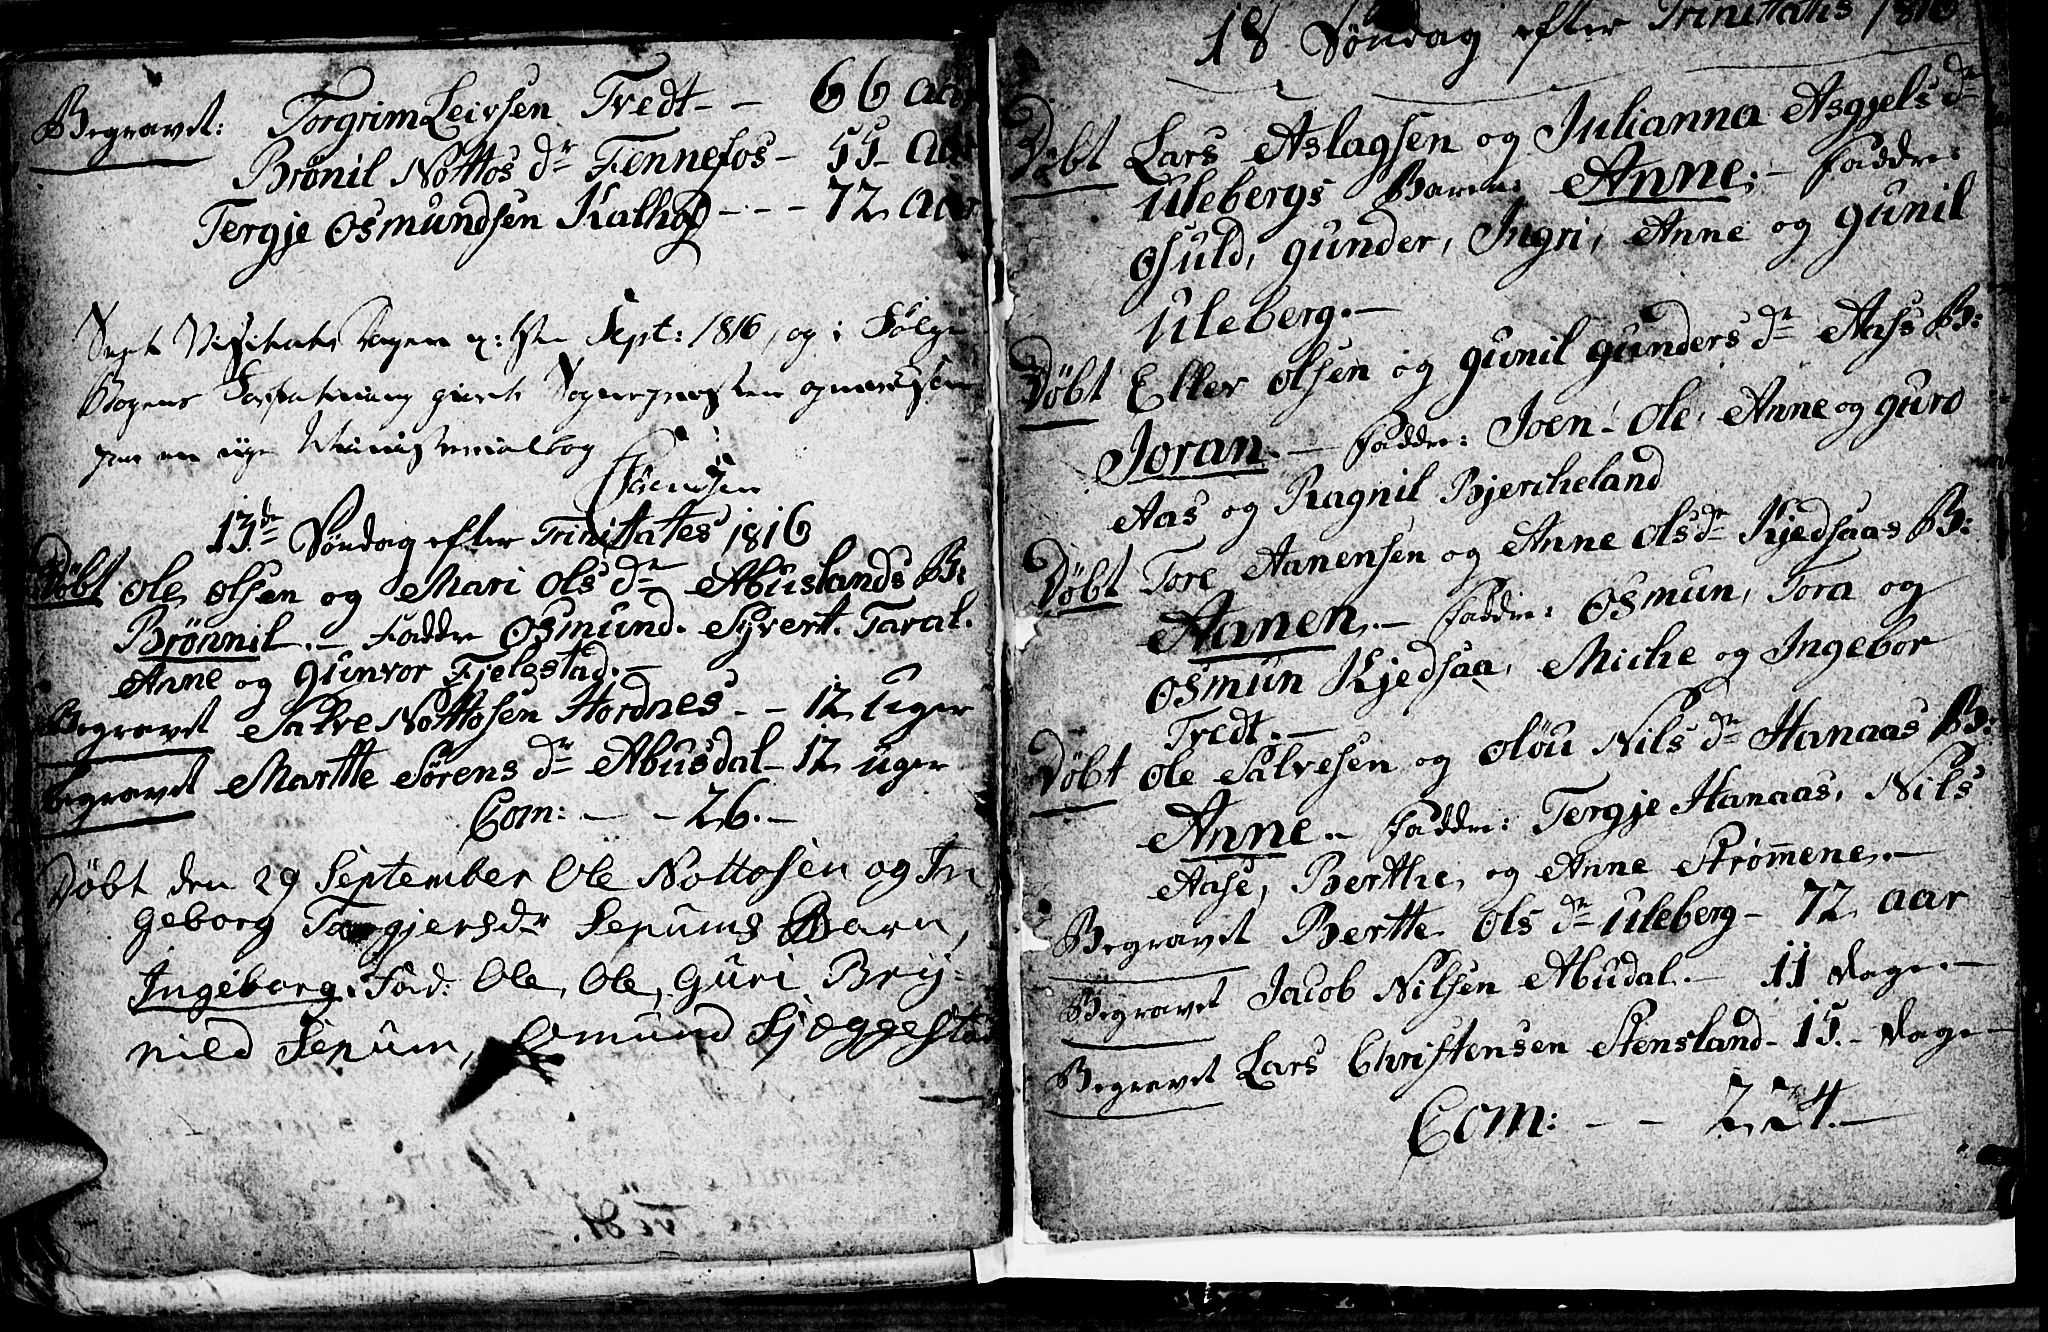 Begravet: Torgrim Leivsen Tvedt - - 66 aar
Brønil Nottos dr Fennefos - 55 aar
Tergje Osmundsen Kalhof - - - 72 aar
Visitats Dagen Sept: 1816, og i Følge
Bogens Forfatning Sognepræsten
en nye Ministerialbog
13de Søndag efter Trinitates 1816
Døbt Ole Olsen og Mari Ols dr Abuslands B:
Brønnil. - Faddre Osmund. Syvert. Taral.
Anne og Gunvor Fjelestad. -
Begravet Salve Nottosen Hordnes - - 12 Uger
Begravet Martte Sørens dr Abusdal - 12 uger
Com: - - 26. -
Døbt den 29 September Ole Nottosen og In
geborg Torgjersdr Senums Barn,
Ingeborg. Fad: Ole, Ole, Guri Bry=
nild Senum, Osmund Skjeggestad
18 Søndag efter Trinitatis 1816
Døbt Lars Aslagsen og Julianna Asgjels dr
Ulebergs Barn: Anne. - Faddre:
Osuld, Gunder, Ingri, Anne og Gunil
Uleberg. -
Døbt Ellev Olsen og Gunil Gunders dr Aass B:
Joran. - Faddre: Joen. Ole. Anne og Guro
Aas og Ragnil Bjercheland
Døbt Tore Aanensen og Anne Ols dr Kjedsaas B:
Aanen. - Faddre: Osmun, Tora og
Osmun Kjedsaa, Miche og Ingebor
Tvedt. -
Døbt Ole Salvesen og Oløu Nils dr Hanaas B:
Anne. - Faddre: Tergje Hanaas, Nils
Aase, Berthe, og Anne Strømmene. -
Begravet Bertte Ols dr Uleberg - 72 aar
Begravet Jacob Nilsen Abudal. - 11 dage. -
Begravet Lars Christensen Stensland - 15. - dage -
Com: - - 224. -